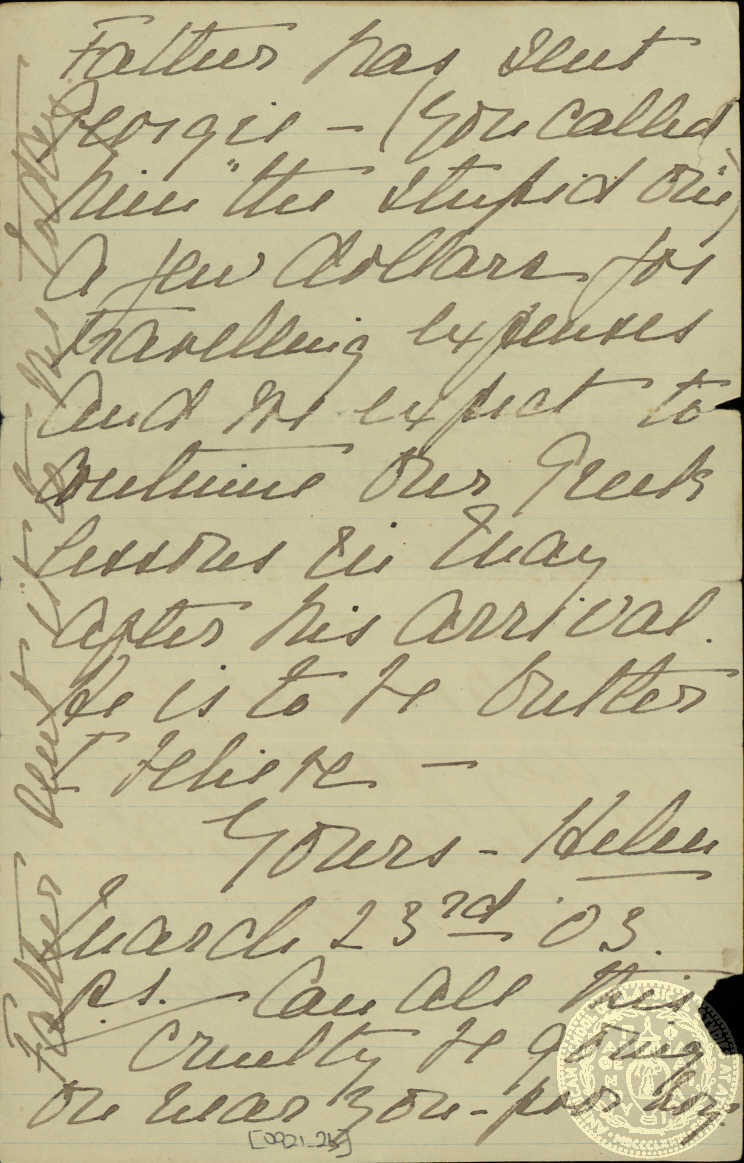 Father has sent
Georgie – (you called
him "the stupid one")
a few dollars for
travelling expenses
and we expect to
continue our Greek
lessons in May
after his arrival.
He is to be butler
I believe –
Yours – Helen
March 23rd '03.
P.S. Can all this
cruelty be going
on near you – poor boy.
Father sent it to me today
[0921_25]